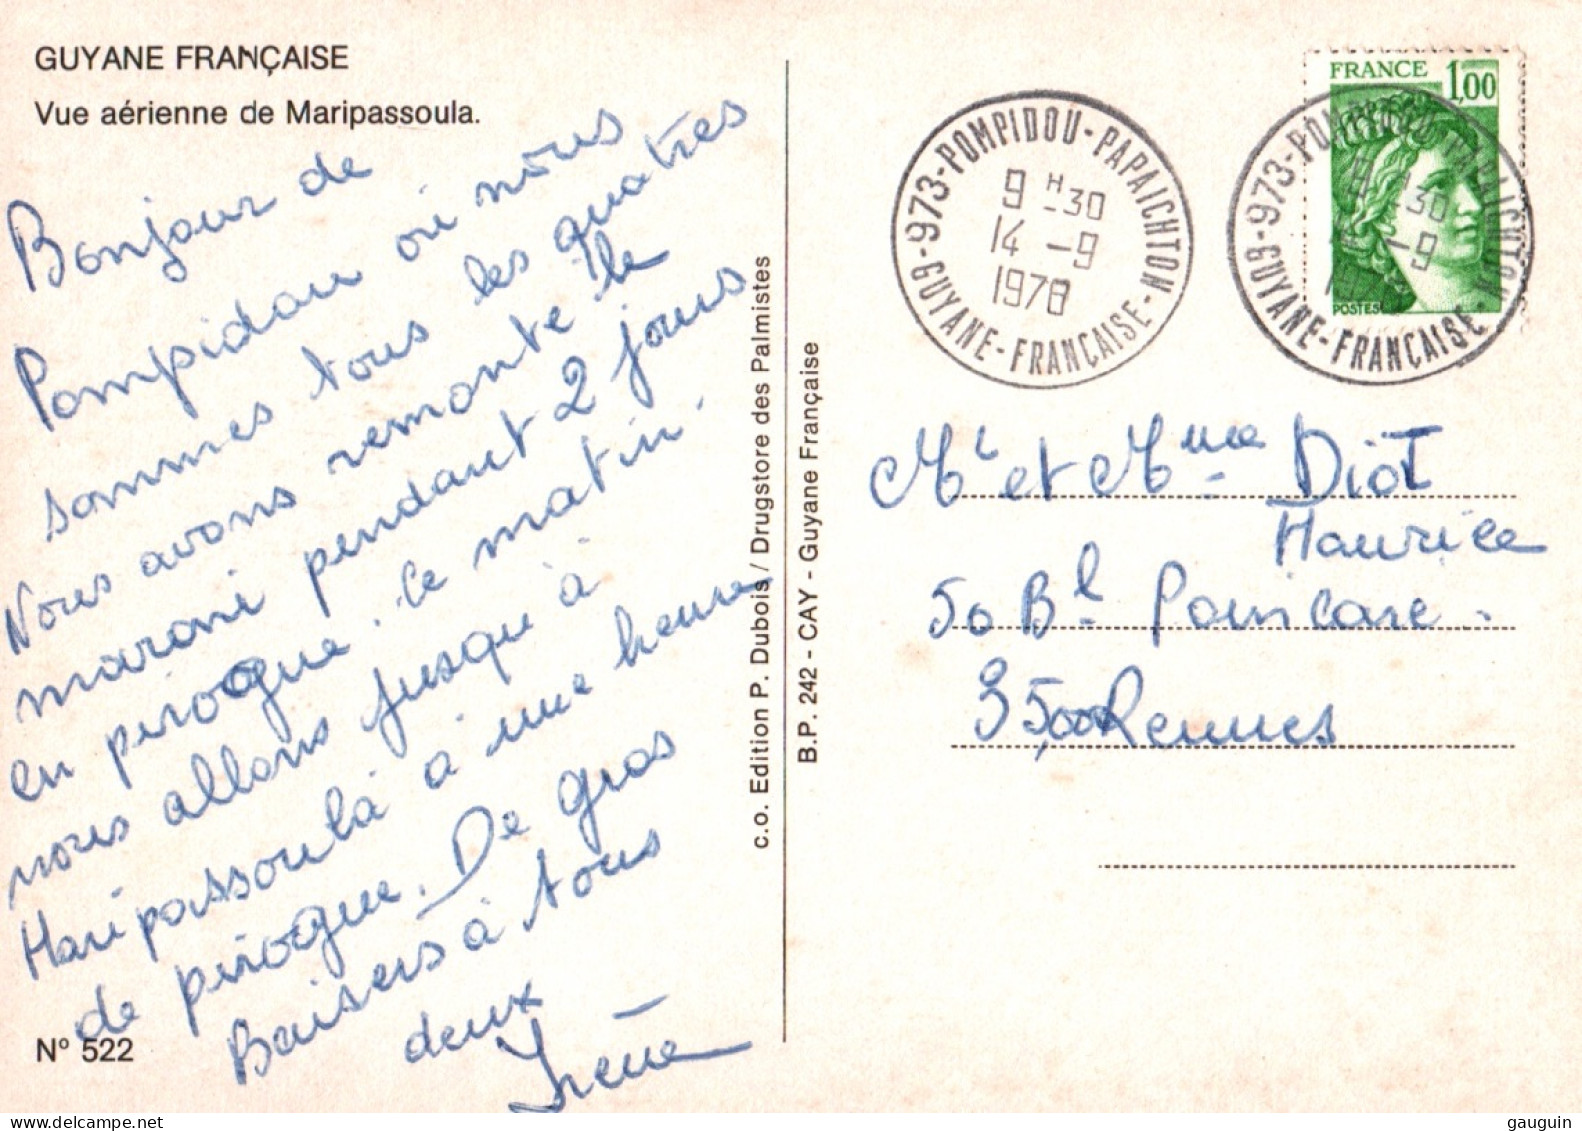 GUYANE FRANÇAISE
Vue aérienne de Maripassoula.
Bonjour de
Pompidou où nous
sommes tous les quatres
Nous avons remonté le
maroni pendant 2 jours
en pirogue. Ce matin
nous allons jusqu'à
Maripassoula à une heure
de pirogue. De gros
Baisers à tous
deux
Irène
N° 522
c.o. Edition P. Dubois / Drugstore des Palmistes
B.P. 242 - CAY - Guyane Française
973-POMPIDOU-PAPAICHTON
9 H 30
14 -9
1978
GUYANE-FRANCAISE
FRANCE 1,00
POSTES
973-POMPIDOU-PAPAICHTON
30
-9
GUYANE-FRANCAISE
Mr et Mme Diot
Maurice
50 Bl Poincaré
35000 Rennes
gauguin
www.delcampe.net